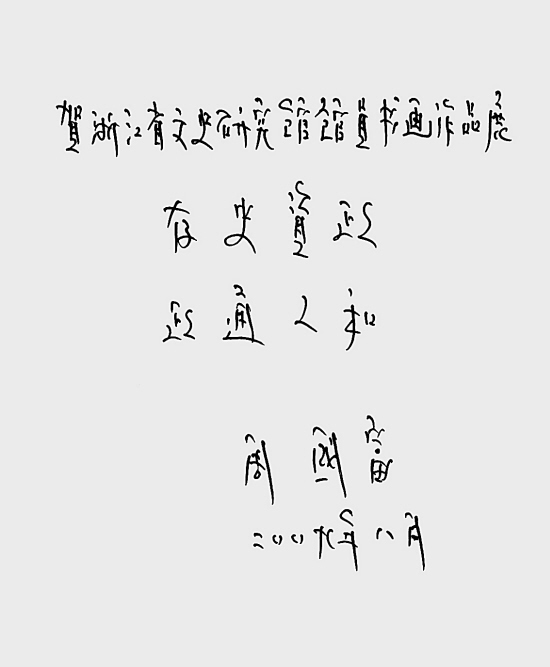 賀浙江省文史研究館館員书画作品展
存史資政
政通人和
周國富
二〇〇九年八月